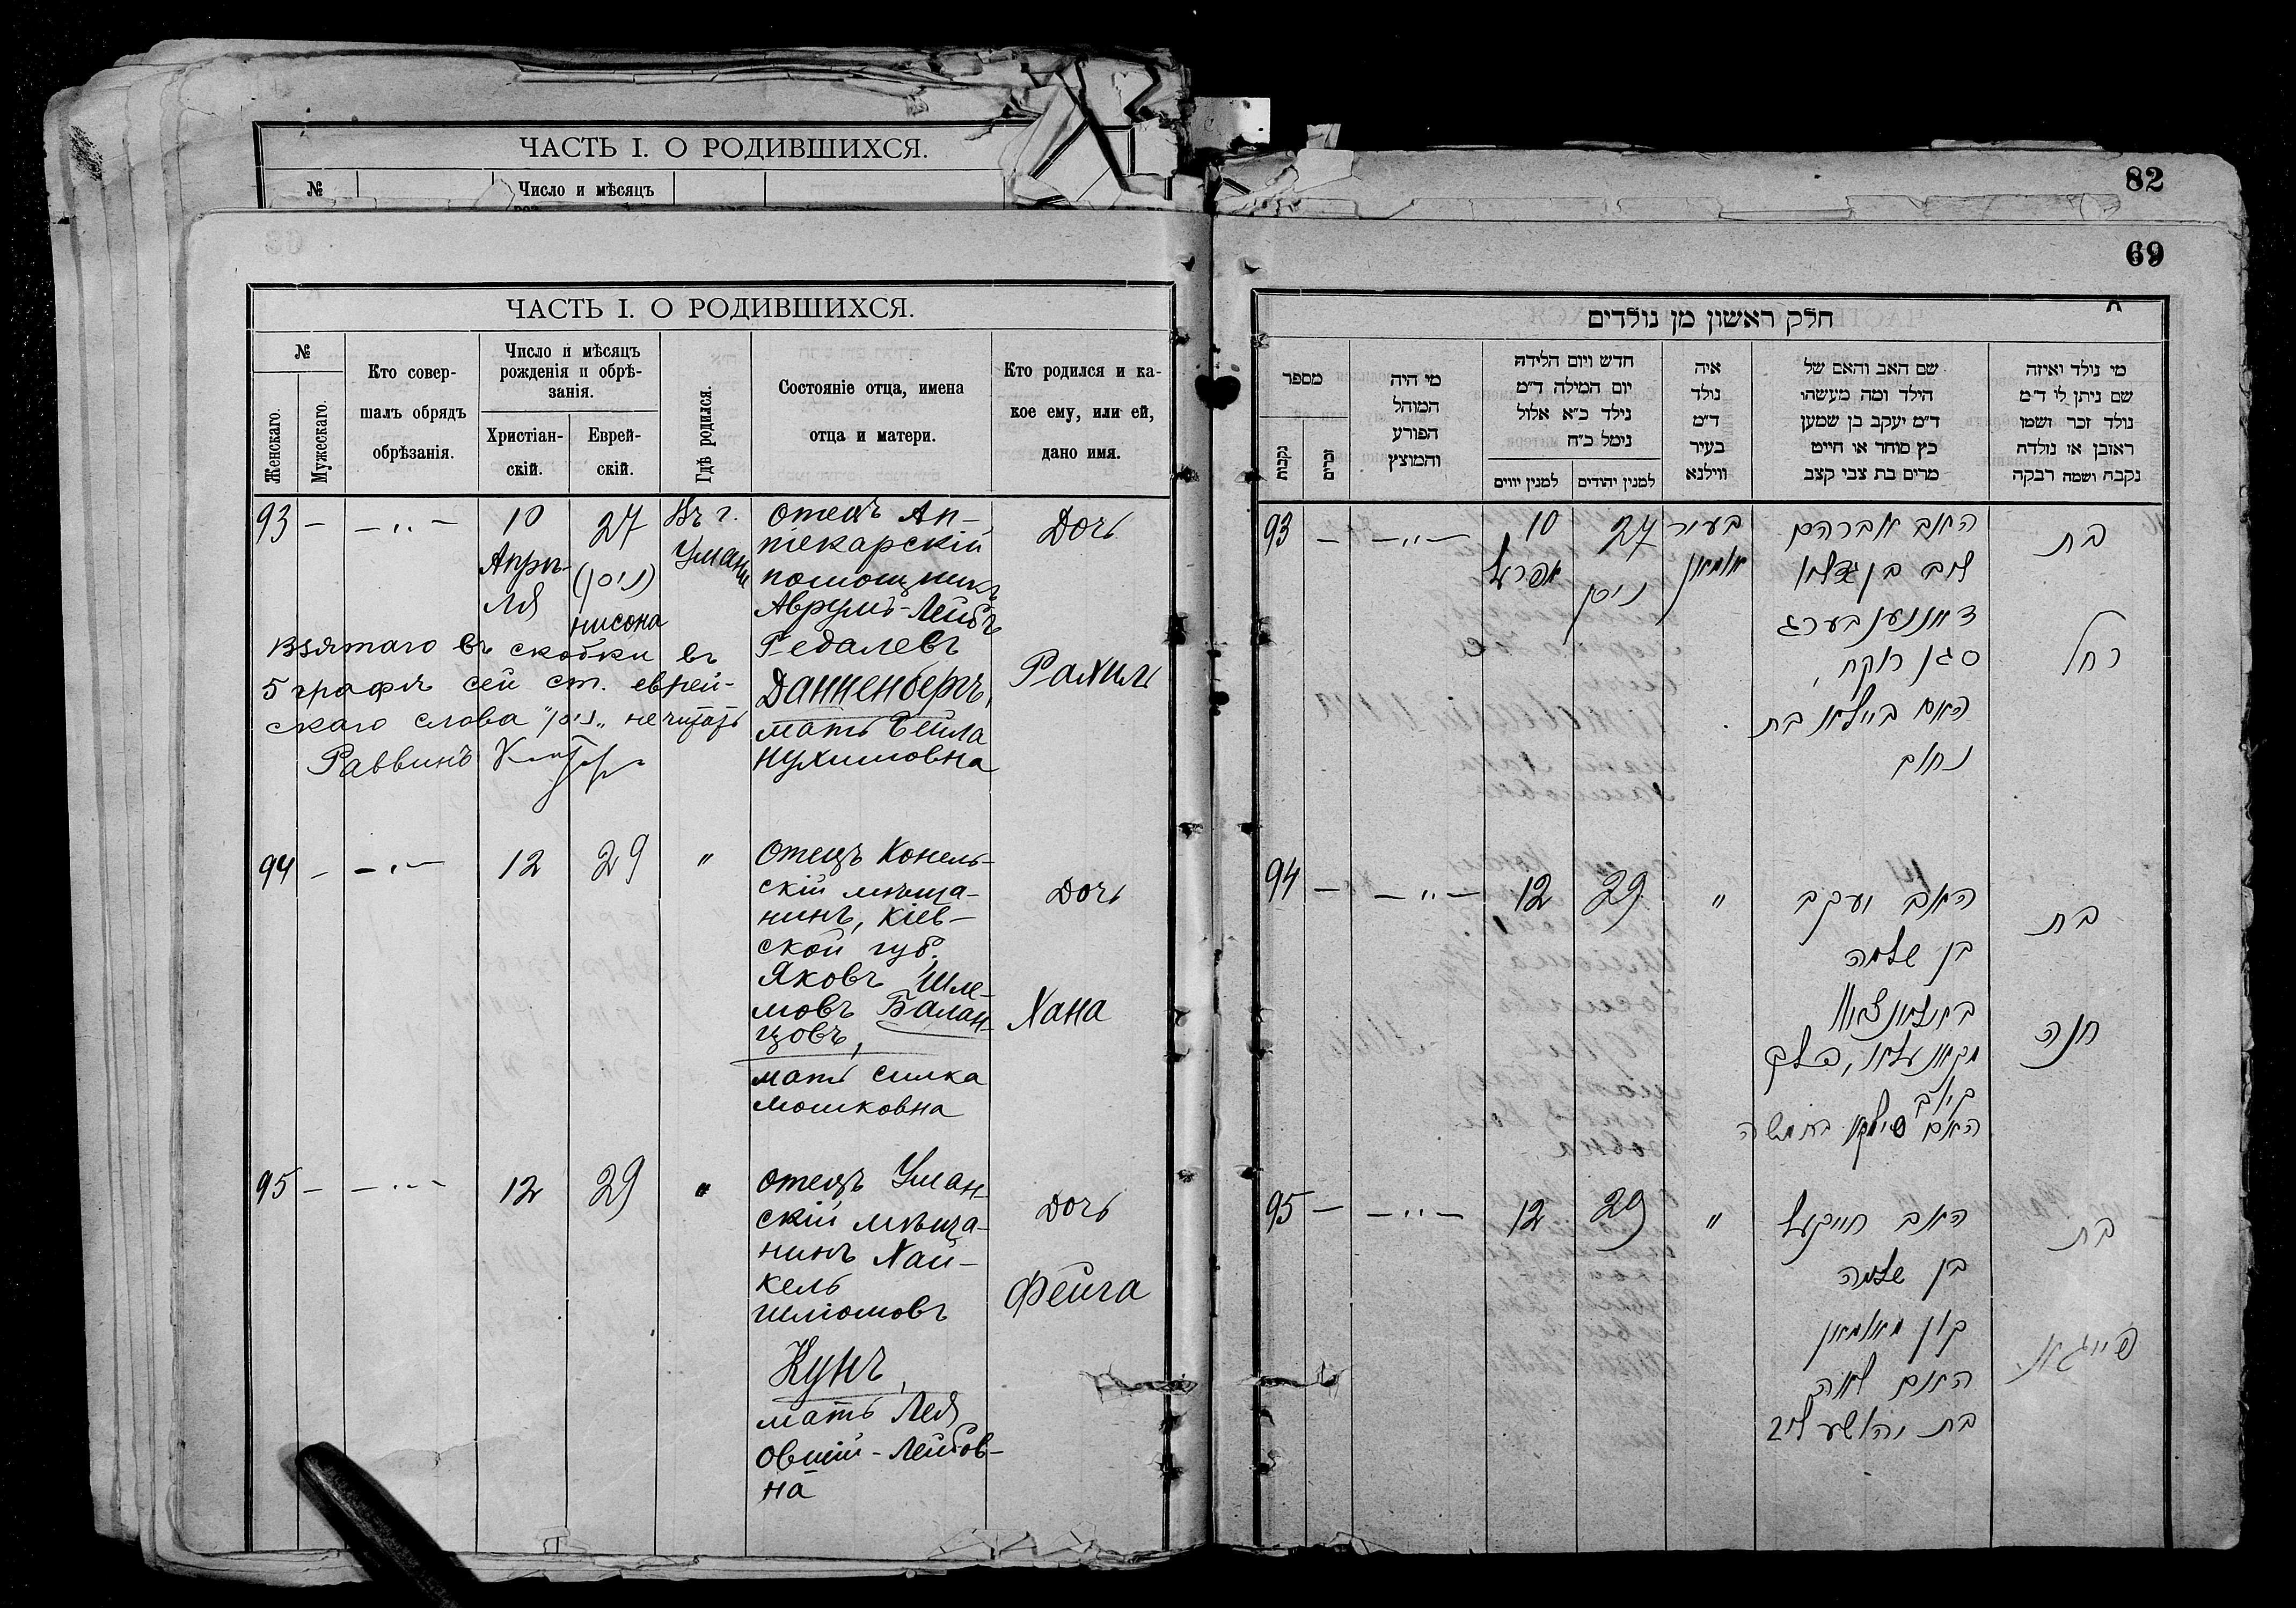 ЧАСТЬ I. О РОДИВШИХСЯ.
№
Число и мѣсяцъ
82
69
ЧАСТЬ I. О РОДИВШИХСЯ.
№
Женскаго.
Мужескаго.
Кто совер-
шалъ обрядъ
обрѣзанія.
Число и мѣсяцъ
рожденія и обрѣ-
занія.
Христіан-
скій.
Еврей-
скій.
Гдѣ родился.
Состояніе отца, имена
отца и матери.
Кто родился и ка-
кое ему, или ей,
дано имя.
93 — — „ —
10
Апрѣ-
ля
27
(ניסן)
нисона
Въ г.
Умани
отецъ Ап-
текарскій
помощникъ
Аврумъ-Лейбъ
Гедалевъ
Данненбергъ,
мать Бейла
Нухимовна
Дочь
Рахиль
Взятаго въ скобки въ
5 графѣ сей ст. еврей-
скаго слова "ניסן" не читать
Раввинъ
94 — — „ —
12
29
"
отецъ Конель-
скій мѣща-
нинъ, Кіев-
ской губ.
Яковъ Шле-
мовъ Балан-
цовъ,
мать Силка
Мошковна
Дочь
Хана
95 — — „ —
12
29
"
отецъ Уман-
скій мѣща-
нинъ Хай-
кель
Шліомовъ
Кунъ,
мать Лея
Овшій-Лейбов-
на
Дочь
Фейга
חלק ראשון מן נולדים
מספר
נקבות
זכרים
מי היה
המוהל
הפורע
והמוצץ
חדש ויום הלידה
יום המילה ד"מ
נילד כ"א אלול
נימל כ"ח
למנין יווים
למנין יהודים
איה
נולד
ד"מ
בעיר
ווילנא
שם האב והאם של
הילד ומה מעשהו
ד"מ יעקב בן שמען
כץ סוחר או חייט
מרים בת צבי קצב
מי נולד ואיזה
שם ניתן לו ד"מ
נולד זכר ושמו
ראובן או נולדה
נקבה ושמה רבקה
93 — — „ —
10
אפריל
27
ניסן
בעיר
אומאן
האב אברהם
ליב בן גדליו
דאננענבערג
סגן רוקח,
האם ביילא בת
נחום
בת
רחל
94 — — „ —
12
29
"
האב יעקב
בן שלמה
באלאנצאוו
האם סילקא בת משה
בת
חנה
95 — — „ —
12
29
"
האב חייקעל
בן שלמה
קון מאומאן
האם לאה
בת יהושע ליב
בת
פייגא